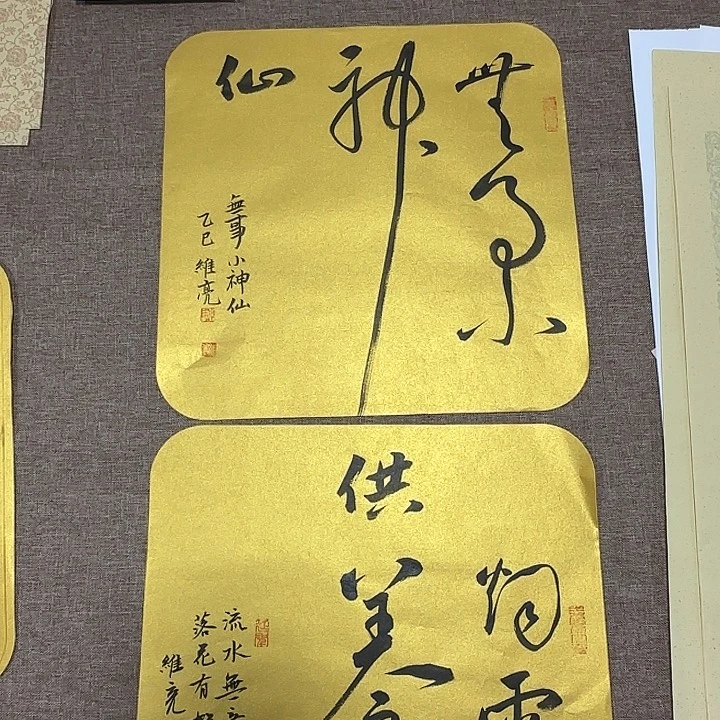 無事小
神
仙
無事小神仙
乙巳 維亮
烟雲
供美
流水無
落花有
維亮